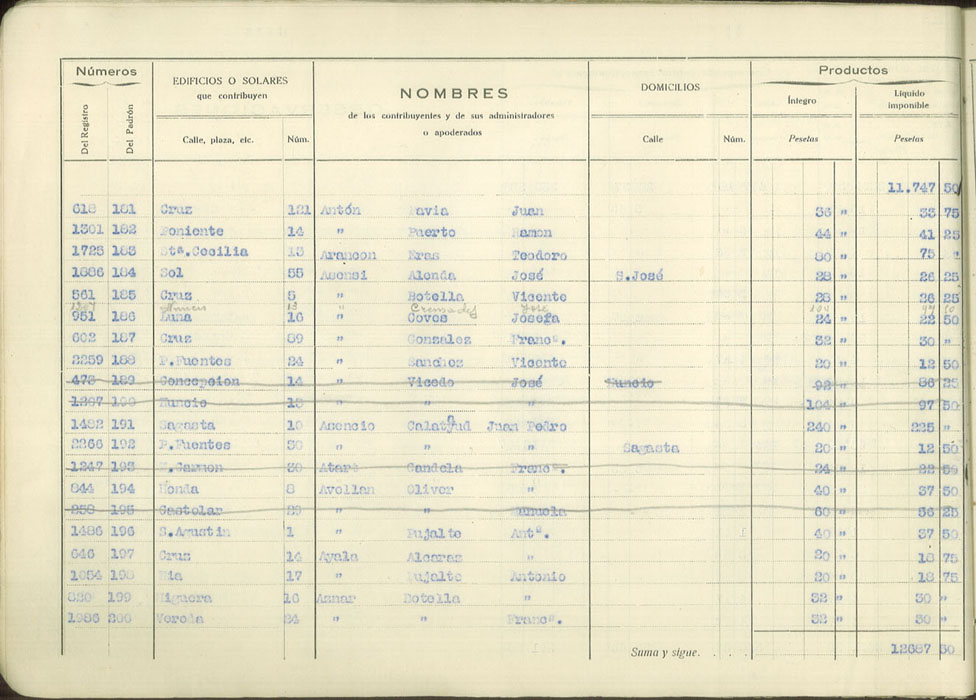 Números EDIFICIOS O SOLARES que contribuyen NOMBRES de los contribuyentes y de sus administradores o apoderados DOMICILIOS Productos
Del Registro Del Padrón Calle, plaza, etc. Núm. Calle Núm. Íntegro Pesetas Líquido imponible Pesetas
11.747 50
618 181 Cruz 121 Antón Pavia Juan 36 " 33 75
1301 182 Poniente 14 " Puerto Ramon 44 " 41 25
1725 183 Stª.Cecilia 13 Arancon Eras Teodoro 80 " 75 "
1686 184 Sol 55 Asensi Alonda José S.José 28 " 26 25
561 185 Cruz 5 " Botella Vicente 28 " 26 25
Nuncio 13 Cremades José 104 97 50
951 186 Luna 16 " Coves Josefa 24 " 22 50
602 187 Cruz 89 " Gonzalez Francº. 32 " 30 "
2259 188 P.Fuentes 24 " Sanchez Vicente 20 " 12 50
478 189 Concepcion 14 " Vicedo José Nuncio 92 " 86 25
1267 190 Nuncio 13 " " " 104 " 97 50
1482 191 Sagasta 10 Asencio Calatyud Juan Pedro 240 " 225 "
n
2266 192 P.Fuentes 30 " " " Sagasta 20 " 12 50
1247 193 Carmen 30 Candela Francº. 24 " 22 50
844 194 Honda 8 Avellan Oliver " 40 " 37 50
195 Castelar " " Manuela 60 " 56 25
1486 196 S.Agustin 1 " Pujalte Antº. 40 " 37 50
646 197 Cruz 14 Ayala Alcaraz " 20 " 18 75
1054 198 17 " Pujalte Antonio 20 " 18 75
820 199 Higuera 16 Aznar Botella " 32 " 30 "
1986 200 Vereda 24 " " Francº. 32 " 30 "
Suma y sigue. . . . 12687 50